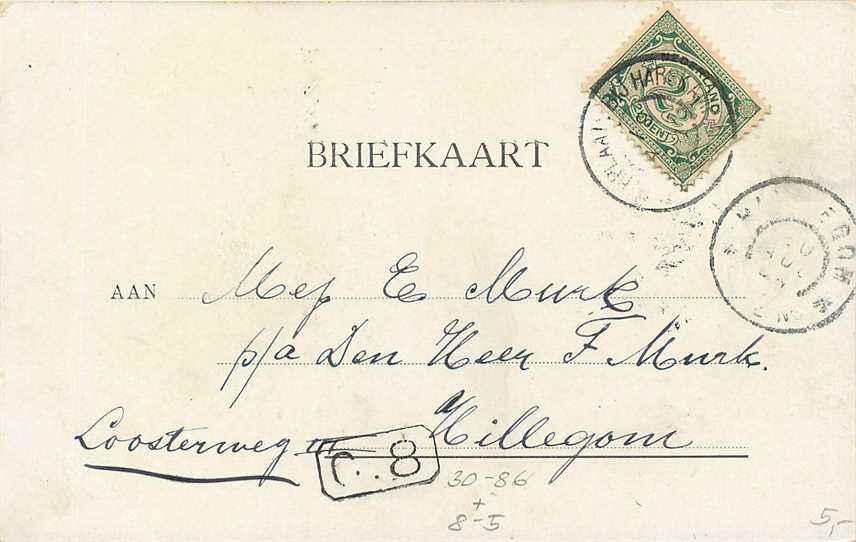 NEDERLAND
2½ CENT
BIJ HAREN
BRIEFKAART
AAN Mej E Murk
p/a Den Heer F Murk.
Loosterweg Hillegom
30-86
+
8-5
5,-